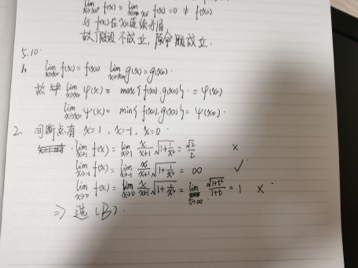 lim f(x) = lim f(x) = 0 ≠ f(x₀)
与 f(x) 在 x₀ 连续矛盾
故假设不成立, 原命题成立.
5.10.
1. lim f(x) = f(x₀) lim g(x) = g(x₀)
故 lim φ(x) = max{f(x₀), g(x₀)} = φ(x₀)
lim ψ(x) = min{f(x₀), g(x₀)} = ψ(x₀).
2. 间断点有 x=1, x=-1, x=0
lim x→1 f(x) = lim x→1 x/(x+1) √(1+1/x²) = √2/2 ×
lim x→-1 f(x) = lim x→-1 x/(x+1) √(1+1/x²) = ∞ ✓
lim x→0 f(x) = lim x→0 x/(x+1) √(1+1/x²) = lim √(1+t²)/(1+t) = 1 ×
⇒ 选 (B)